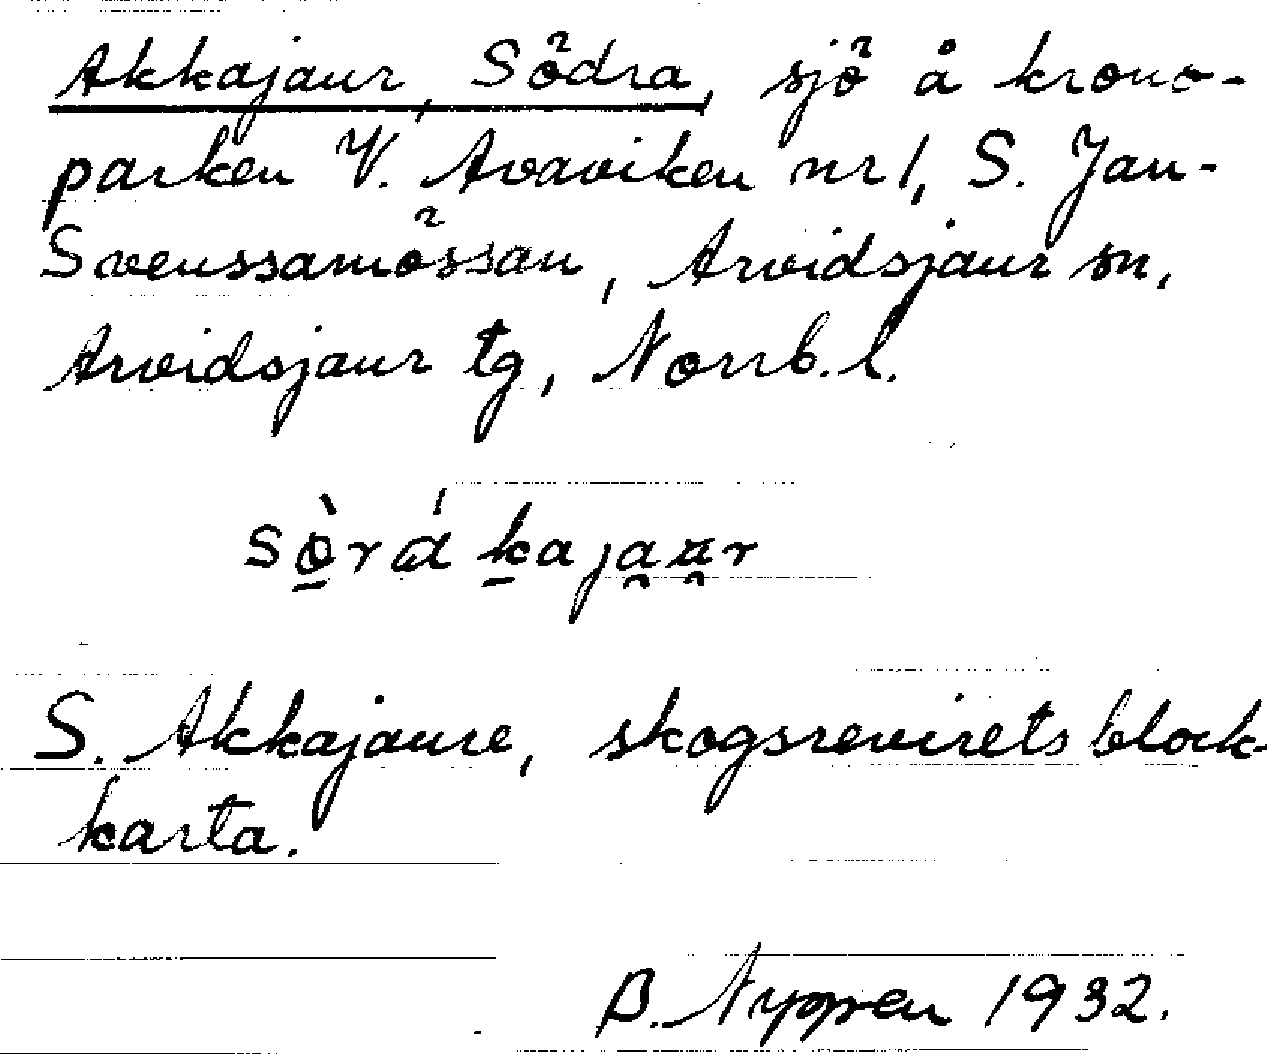 Akkajaur, Södra, sjö å krono-
parken V. Avaviken nr 1, S. Jan-
Svenssamössan, Arvidsjaur sn,
Arvidsjaur tg, Norrb. l.
S. Akkajaure, skogsrevirets block-
karta.
B. 1932.